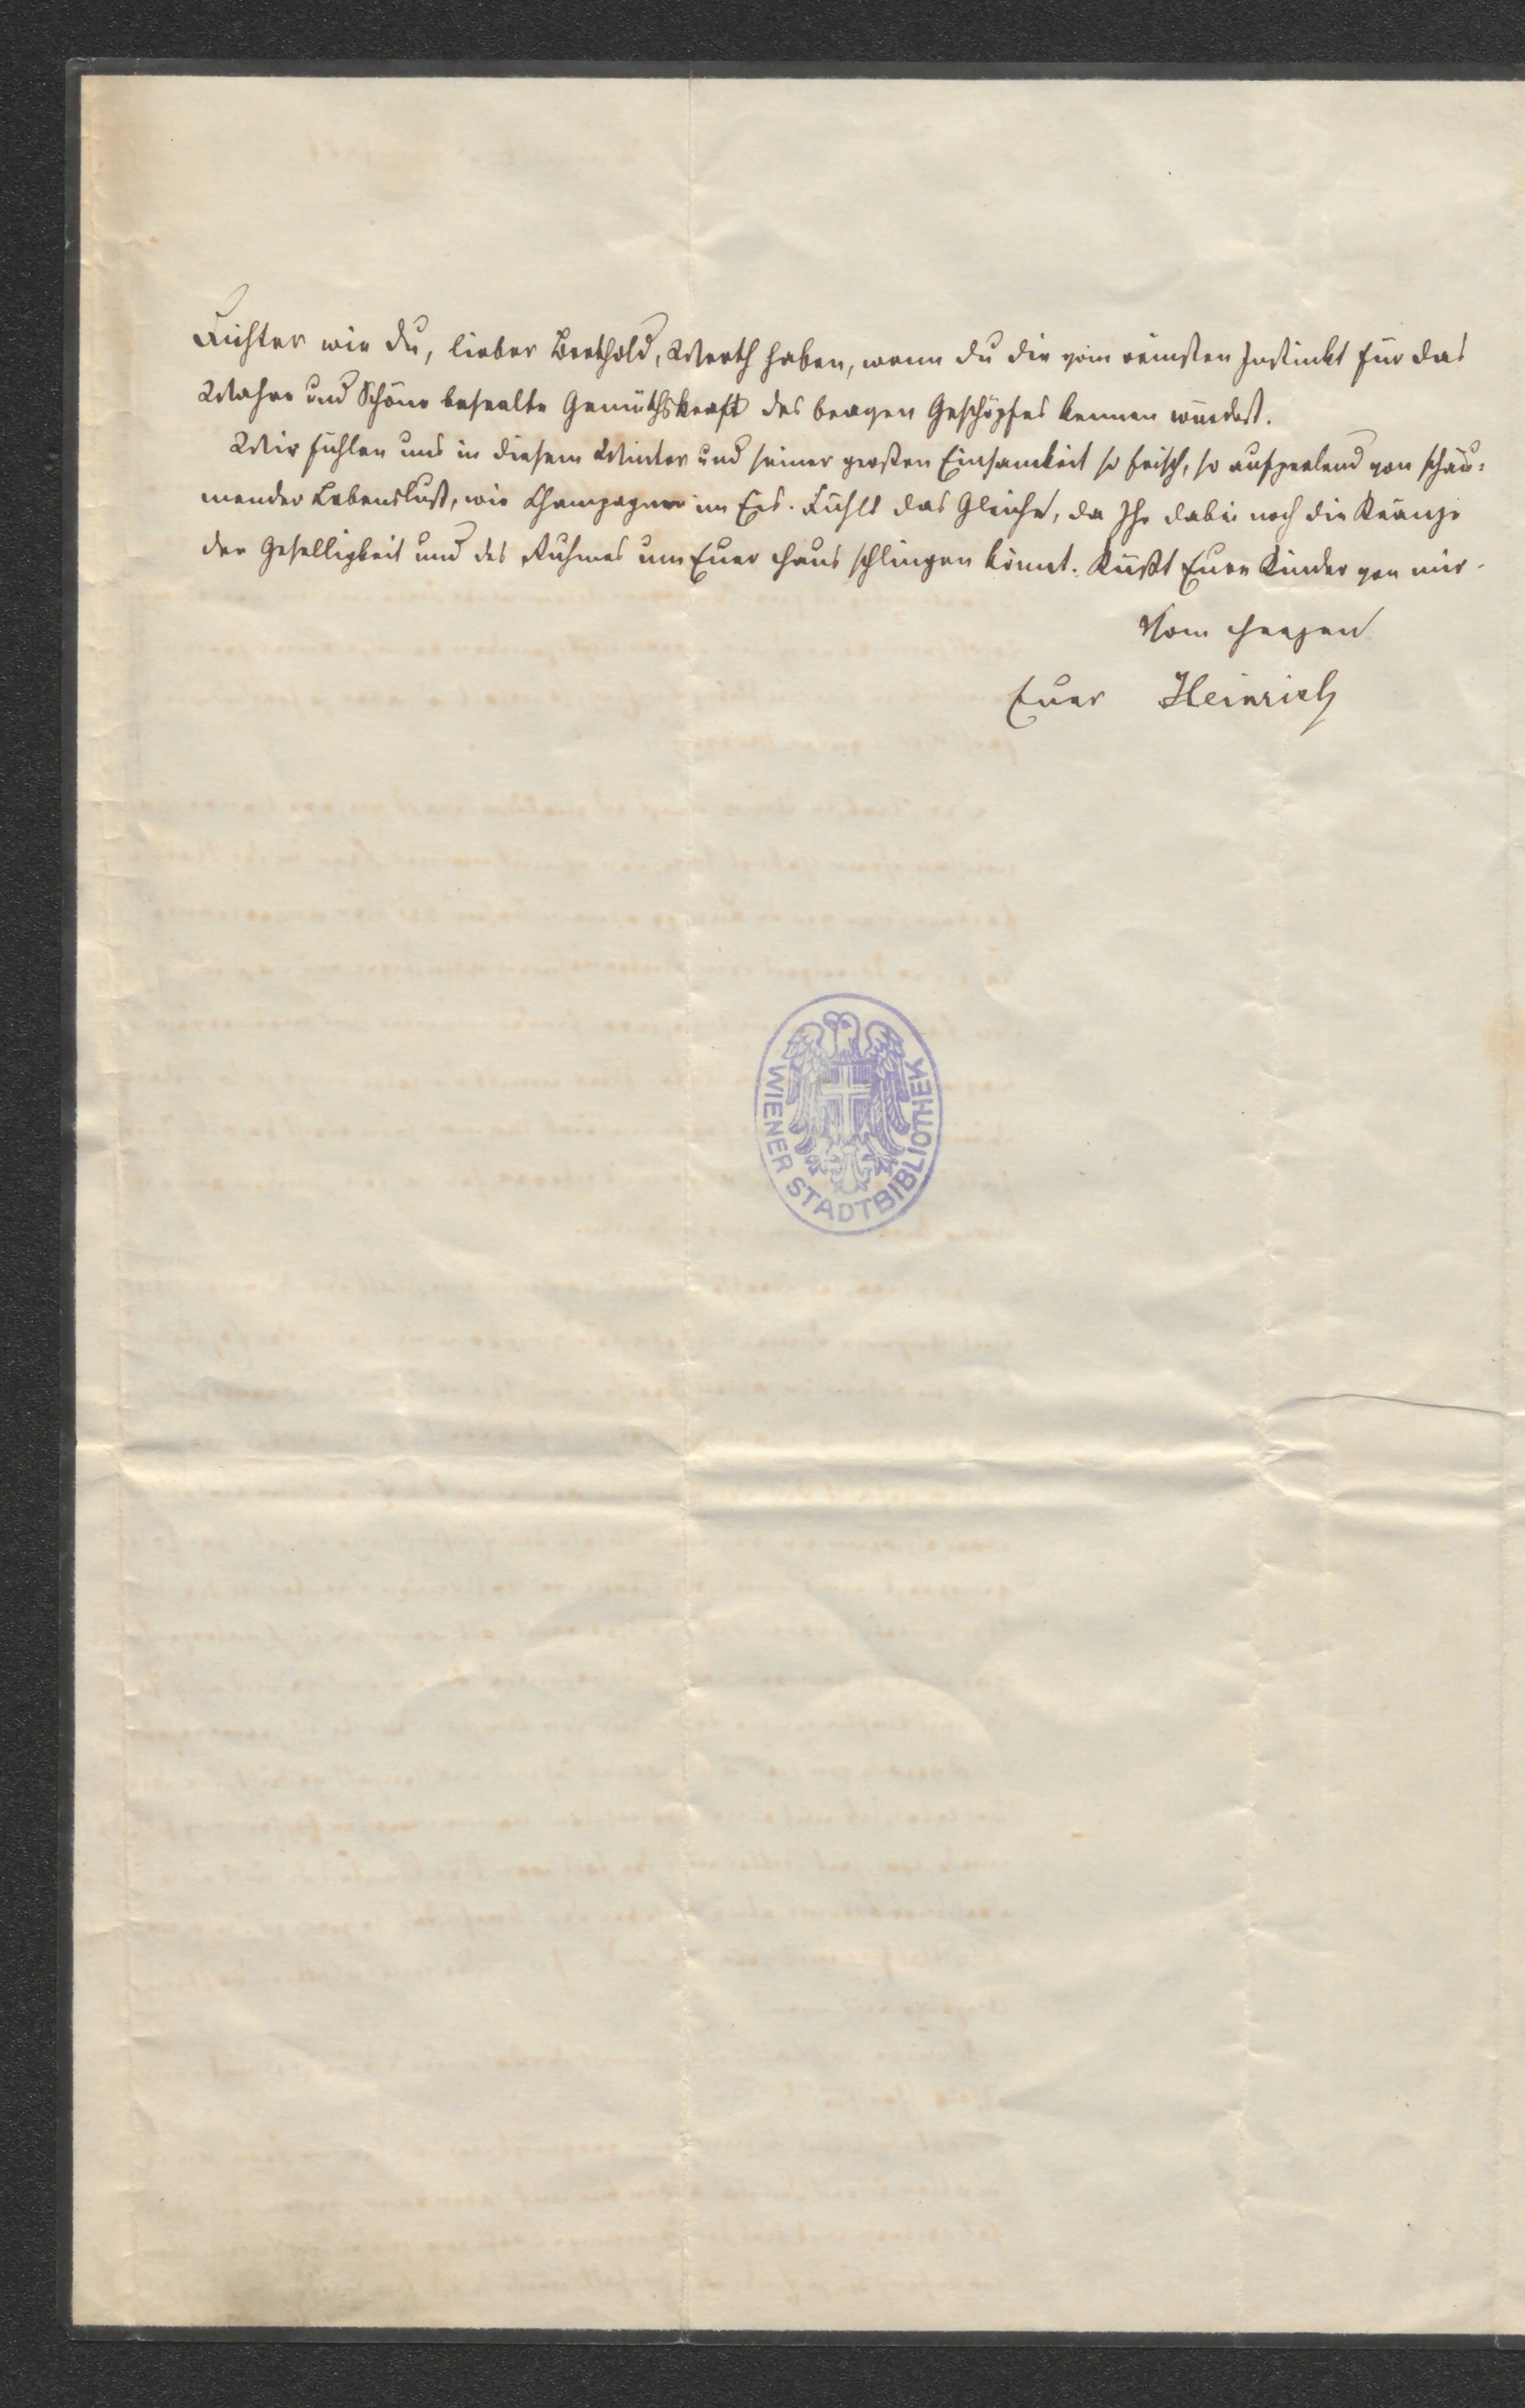 Richter wie du, lieber Berthold, Werth haben, wenn du die vom reinsten Instinkt für das
Wahre und Schöne beseelte Gemüthskraft des braven Geschöpfes kennen würdest.
Wir fühlen uns in diesem Winter und seiner großen Einsamkeit so frisch, so aufperlend von schäu-
mender Lebenslust, wie Champagner im Eis. Fühlt das Gleiche, da Ihr dabei noch die Kränze
der Geselligkeit und des Ruhmes um Euer Haus schlingen könnt. Küßt Eure Kinder von mir.
Vom Herzen
Euer Heinrich
WIENER STADTBIBLIOTHEK